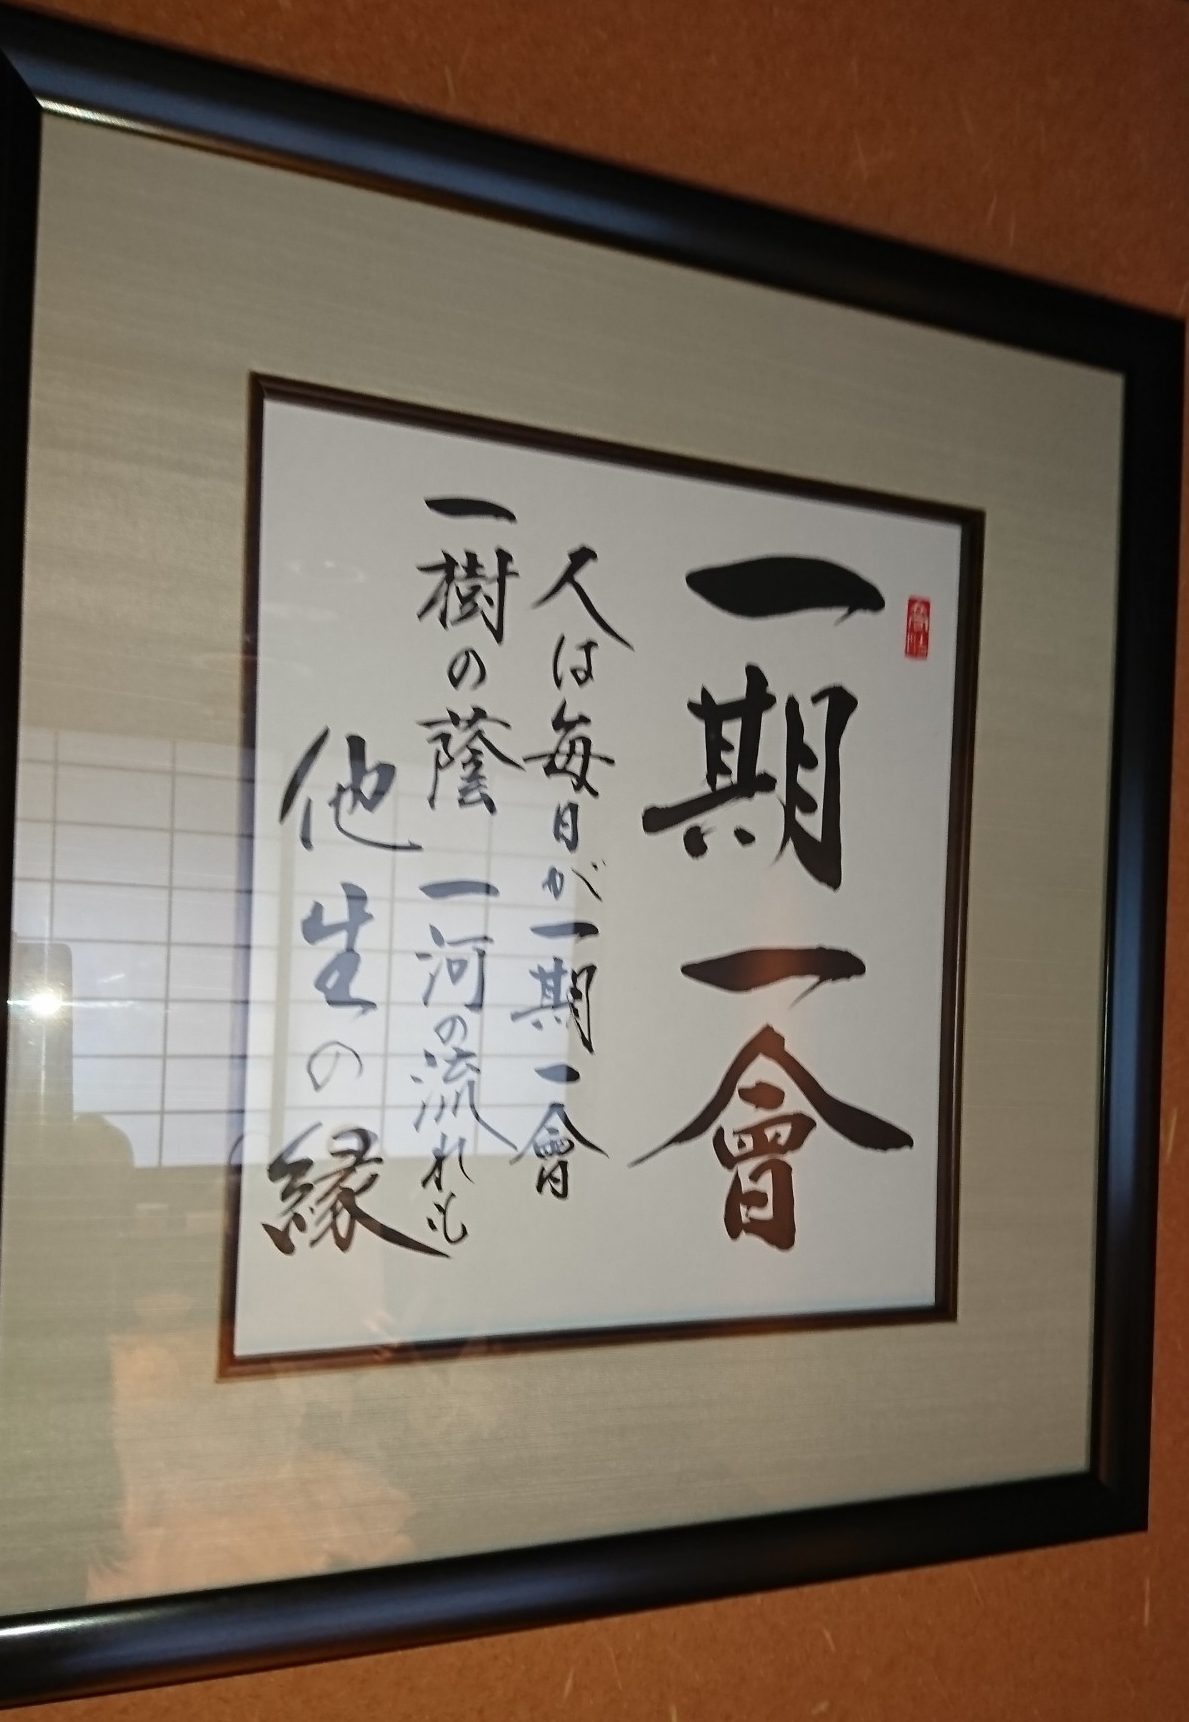 一期一會
人は毎日が一期一會
一樹の蔭一河の流れも
他生の縁